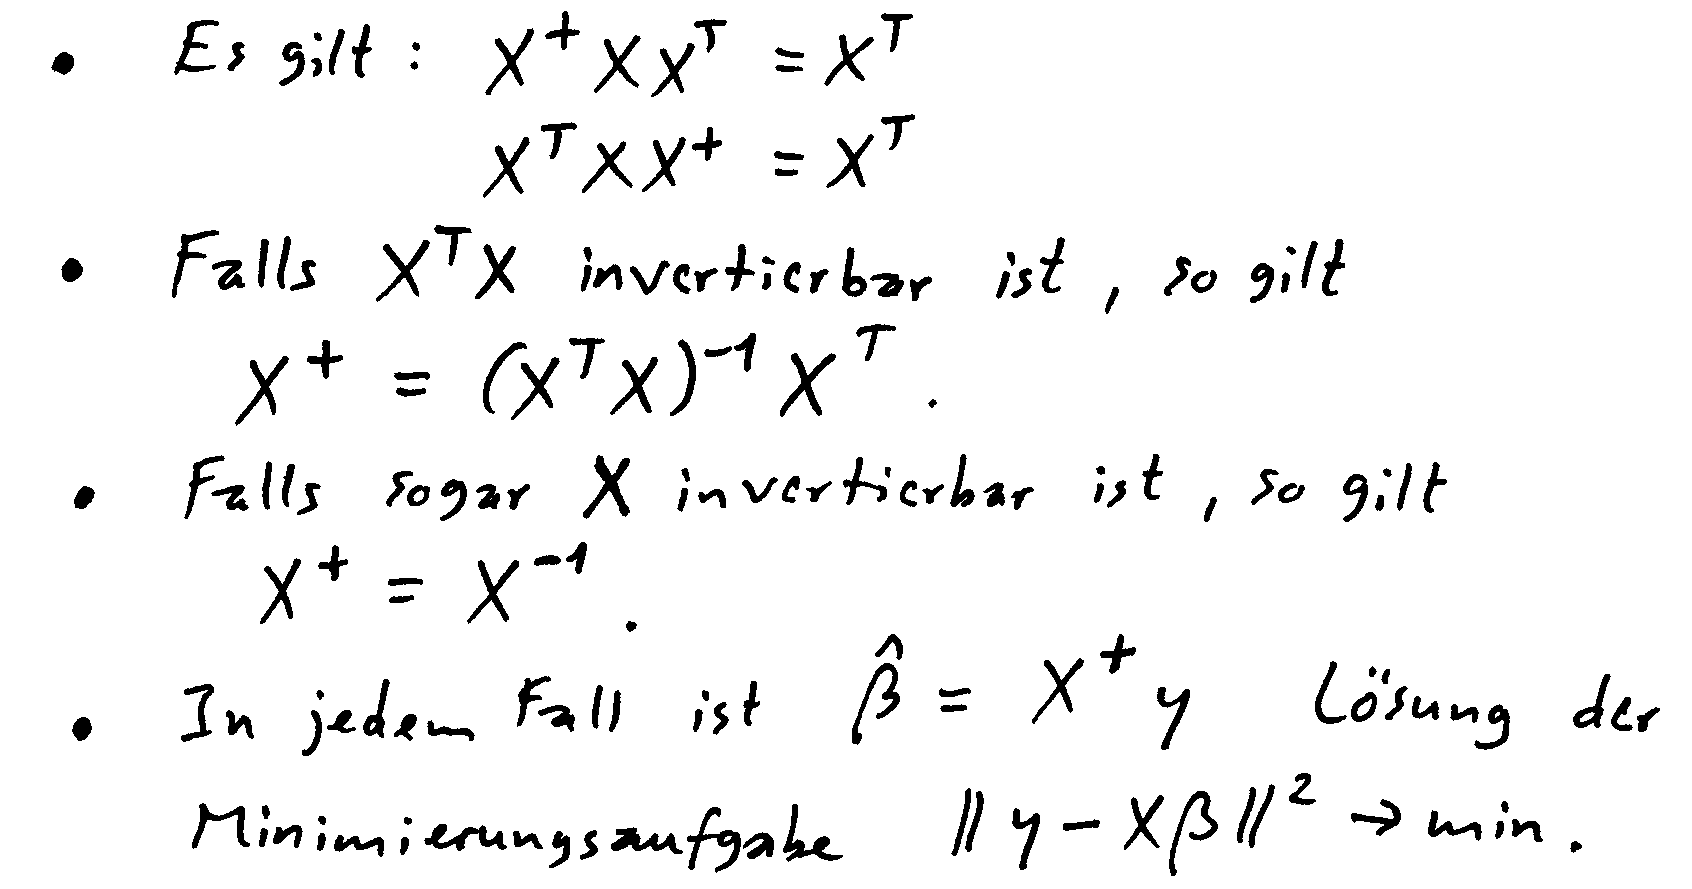 • Es gilt: X⁺XXᵀ = Xᵀ
XᵀXX⁺ = Xᵀ
• Falls XᵀX invertierbar ist, so gilt
X⁺ = (XᵀX)⁻¹Xᵀ.
• Falls sogar X invertierbar ist, so gilt
X⁺ = X⁻¹.
• In jedem Fall ist β̂ = X⁺y Lösung der
Minimierungsaufgabe ‖y − Xβ‖² → min.